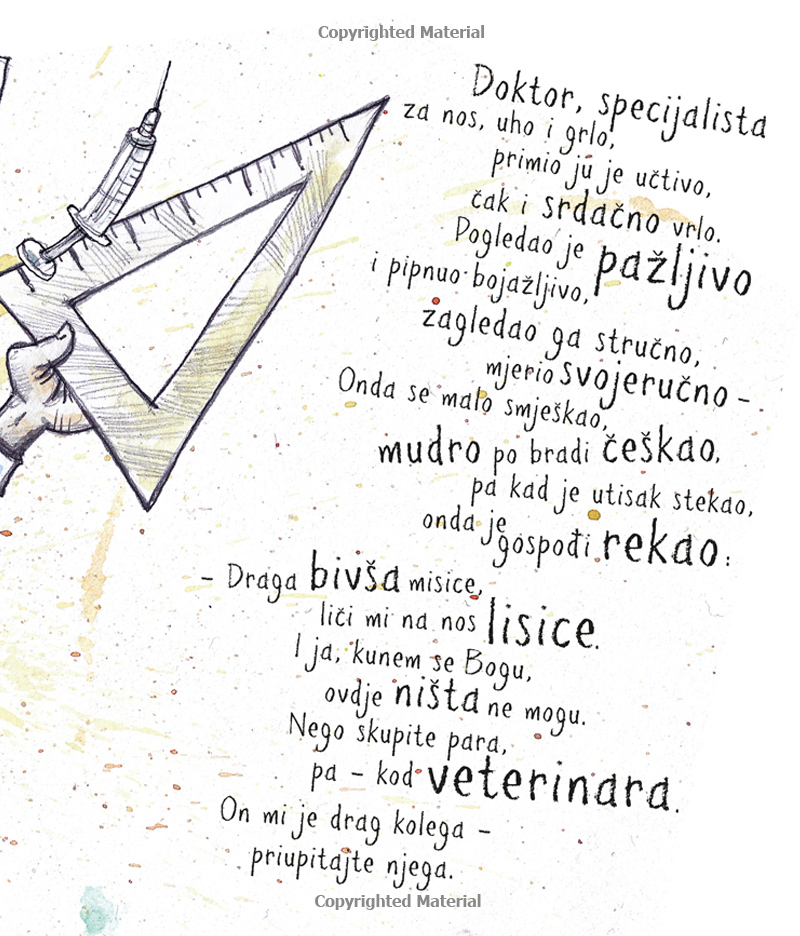 Copyrighted Material
Doktor, specijalista
za nos, uho i grlo,
primio ju je učtivo,
čak i srdačno vrlo.
Pogledao je pažljivo
i pipnuo bojažljivo,
zagledao ga stručno,
mjerio svojeručno –
Onda se malo smješkao,
mudro po bradi češkao,
pa kad je utisak stekao,
onda je
gospođi rekao:
– Draga bivša misice,
liči mi na nos lisice.
I ja, kunem se Bogu,
ovdje ništa ne mogu.
Nego skupite para,
pa – kod veterinara.
On mi je drag kolega –
priupitajte njega.
Copyrighted Material